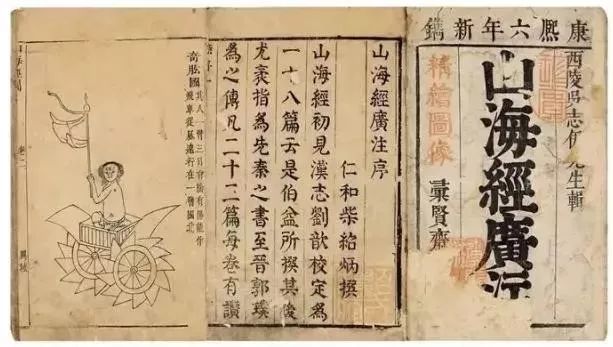 康熙六年新鐫
西陵吳志伊先生輯
山海經廣注
精繪圖像
彙賢齋
山海經廣注序
仁和柴紹炳撰
山海經初見漢志劉歆校定為
一十八篇云是伯益所撰其後
尤袤指為先秦之書至晉郭璞
為之傳凡二十二篇每卷有讚
奇肱國
其人一臂三目有陽能作
飛車從風遠行在一臂國北
山海經圖
卷二
異域